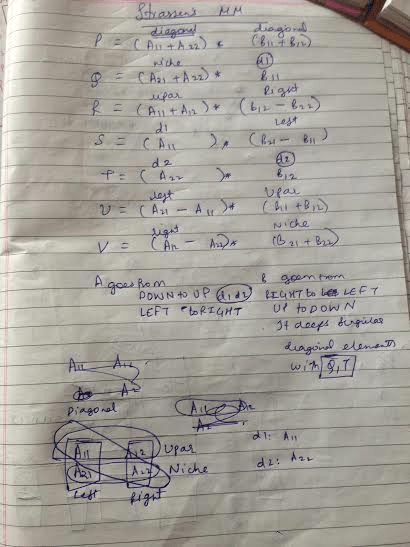 Strassen's MM
diagonal diagonal
P = (A11 + A22) * (B11 + B12)
niche d1
Q = (A21 + A22) * B11
upar Right
R = (A11 + A12) * (B12 - B22)
d1 Left
S = (A11 ) * (B21 - B11)
d2 d2
T = (A22 )* B12
left Upar
U = (A21 - A11)* (B11 + B12)
right Niche
V = (A12 - A22)* (B21 + B22)
A goes from B goes from
DOWN to UP d1 d2 RIGHT to LEFT
LEFT to RIGHT UP to DOWN
It keeps singular
diagonal elements
with Q, T
A11 A12
A2
Diagonal
A11 A12
A2
A11 A12 Upar
A21 A22 Niche
Left Right
d1: A11
d2: A22